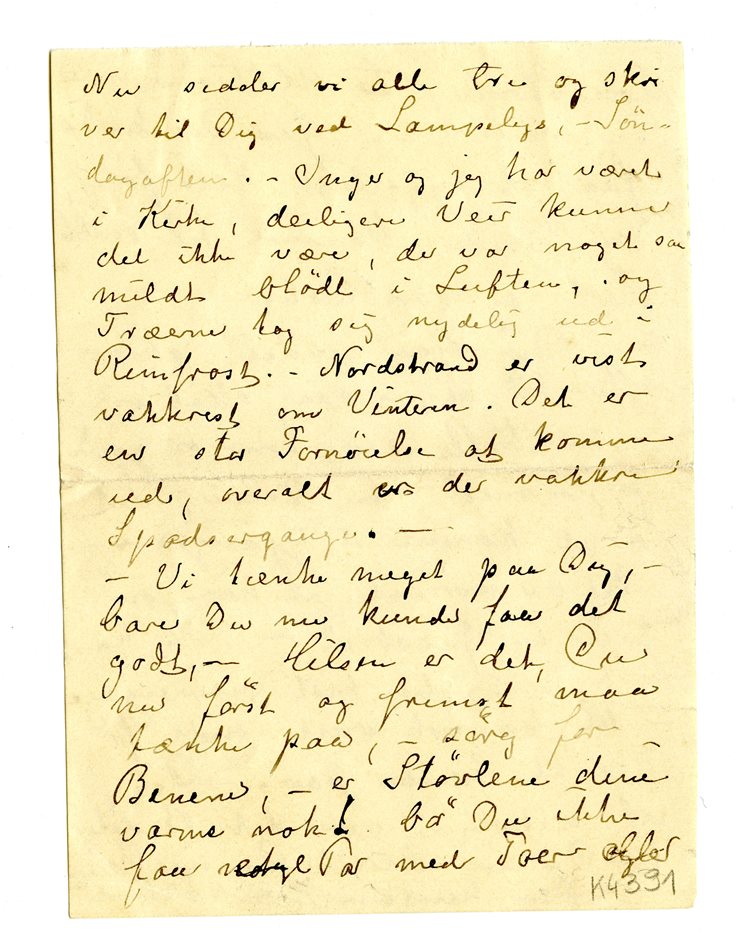 Nu sidder vi alle tre og skri
ver til Dig ved Lampelys, – Søn-
dagaften. – Inger og jeg har været
i Kirke, deiligere Veir kunne
det ikke være, der var noget saa
mildt blödt i Luften, og
Træerne tog sig nydelig ud i
Rimfrost. – Nordstrand er vist
vakkrest om Vinteren. Det er
en stor Fornöielse at komme
ud, overalt er der vakkre
Spadsergange. —
– Vi tænke meget paa Dig, –
bare Du nu kunde faa det
godt, – Helsen er det, Du
nu först og fremst maa
tænke paa, – sörg for
Benene, – er Stövlene dine
varme nok! bö Du ikke
faa Par med Foer eller
K4391